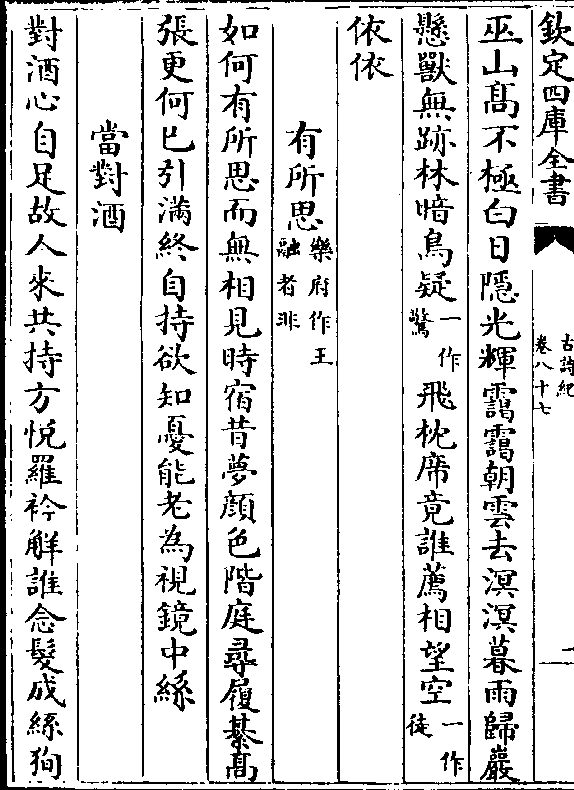 欽定四庫全書
古詩紀
卷八十七
二
巫山髙不極白日隱光輝靄靄朝雲去溟溟暮雨歸巖
懸獸無跡林暗鳥疑一作驚飛枕席竟誰薦相望空一作徒
依依
有所思樂府作王融者非
如何有所思而無相見時宿昔夢顔色階庭尋履綦髙
張更何已引滿終自持欲知憂能老為視鏡中絲
當對酒
對酒心自足故人來共持方悅羅衿解誰念髮成絲狥